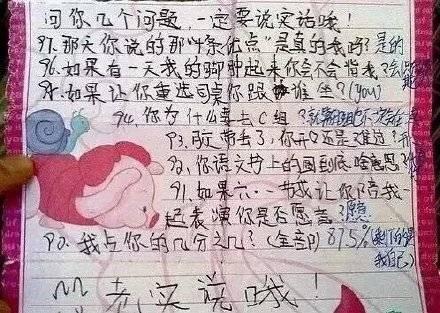 问你几个问题,一定要说实话哦!
97.那天你说的那"十条优点"是真的我吗?是的
96.如果有一天我的脚肿起来你会不会背我?会
95.如果让你重选同桌你跟谁坐?(you)
94.你为什么要去C组?
93.丢了,你开心还是难过?
92.你语文书上的圆到底啥意思
91.如果六一节我让你陪我
起表演你是否愿意 愿意
90.我占你的几分之几?(全部) 87.5%(剩下的是
我自己)
老实说哦!